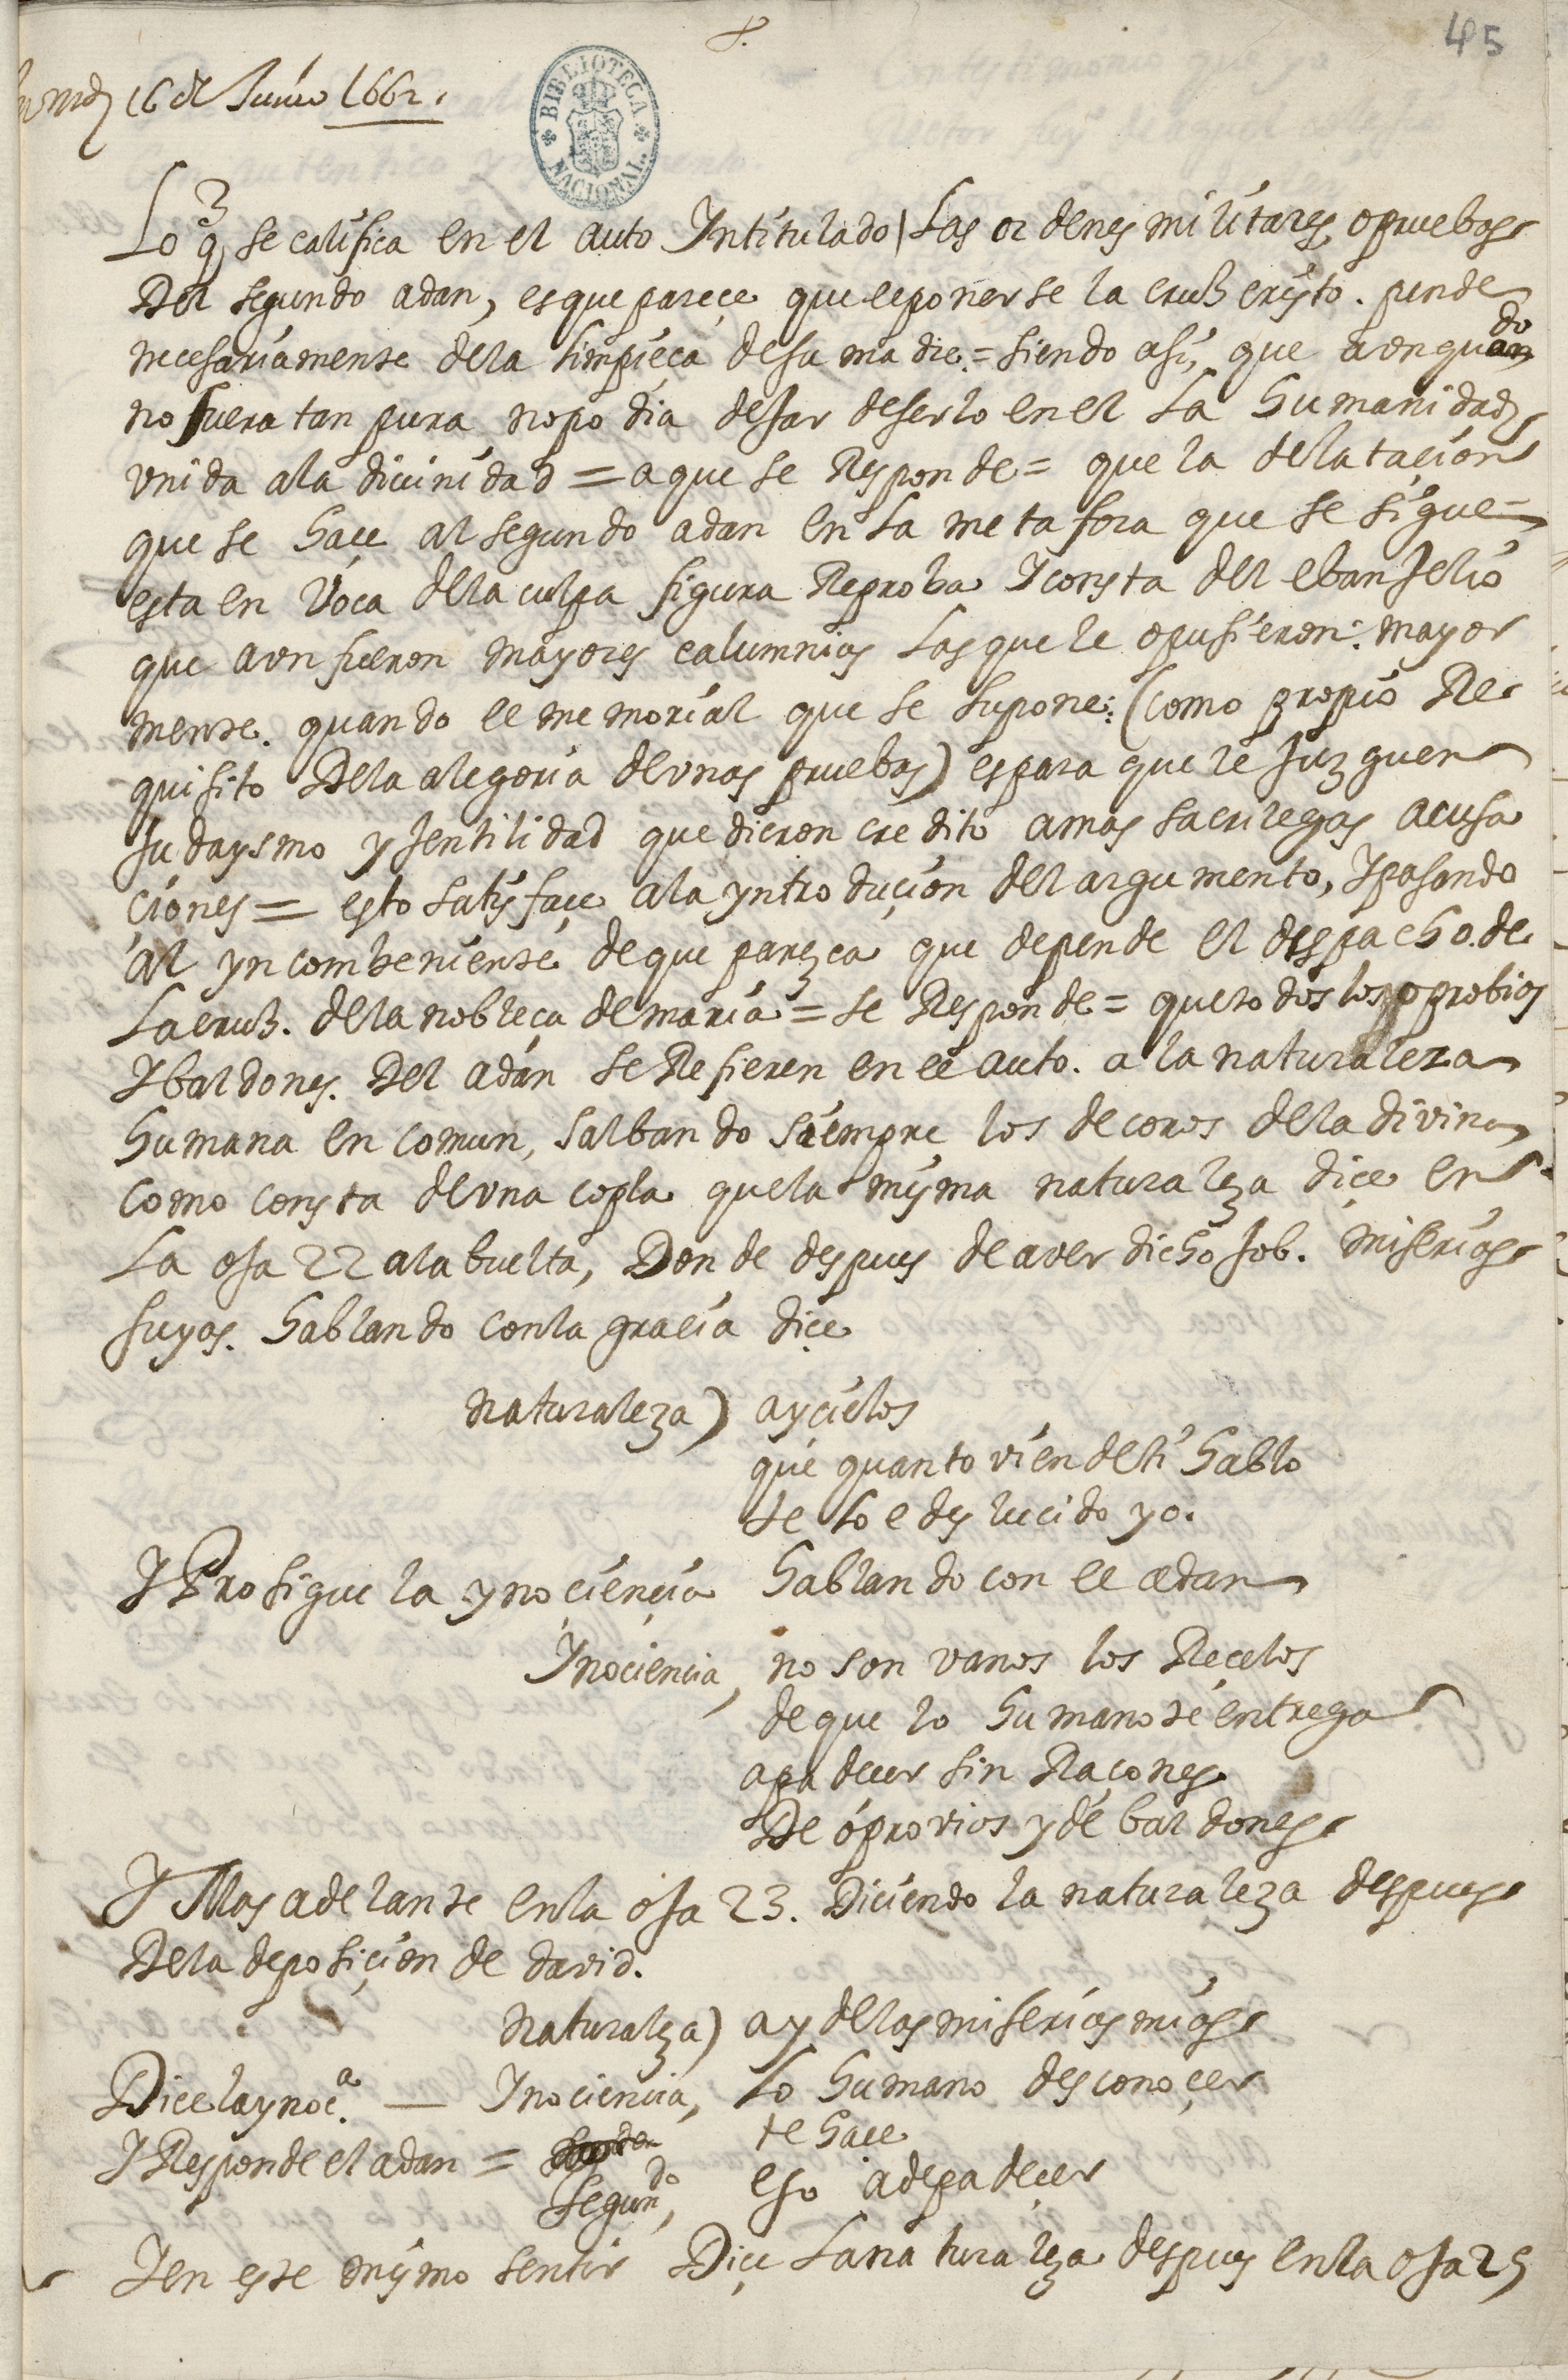 45
en md 16 de Junio 1662.
BIBLIOTECA NACIONAL
Lo q se califica en el auto Yntitulado las ordenes militares o pruebas
Del segundo adan, es que pareçe que el ponerse la cruz cristo. pende
necesariamente de la limpieça de su madre = siendo asi, que aun quando
no fuera tan pura no podia dejar de serlo en el La humanidad
vnida a la diuinidad = a que se Responde = que la delataçion
que se haçe al segundo adan en la metafora que se sigue =
esta en voca de la culpa figura Reproba Y consta del ebanjelio
que avn fueron mayores calumnias las que le opusieron: mayor
mente. quando el memorial que se supone: (como propio Re
quisito De la alegoria de vnas pruebas) es para que le juzguen
Judaysmo y jentilidad que dieron credito a mas sacrilegas acusa
çiones = esto satisfaçe a la yntroduçion del argumento, Y pasando
al yncombeniente de que parezca que depende el despacho. de
La cruz. de la nobleça de maria = se Responde = que todos los oprobios
Y baldones. Del adan se Refieren en el auto. a la naturaleza
humana en comun, salbando siempre los decoros de la divina
como consta de vna copla que la misma naturaleza diçe en
La oja 22 a la buelta, Donde despues de aver dicho Job. miserias
suyas. hablando con la gracia diçe
naturaleza) ay cielos
que quanto vien de ti hablo
te lo e deslucido yo.
Y Prosigue la ynociençia hablando con el adan
Ynociencia, no son vanos los Reçelos
de que lo humano te entrega
a padecer sin Raçones
De oprovios y de baldones
Y Mas adelante en la oja 23. Diciendo la naturaleza despues
De la deposiçion de david.
naturaleza) ay de las miserias mias
Dice la ynoc.a — Ynociencia, lo humano desconoçer
te haçe
Y Responde el adan = Segundo, eso a de padeçer
Y en este mismo sentir Diçe La naturaleza despues en la oja 25